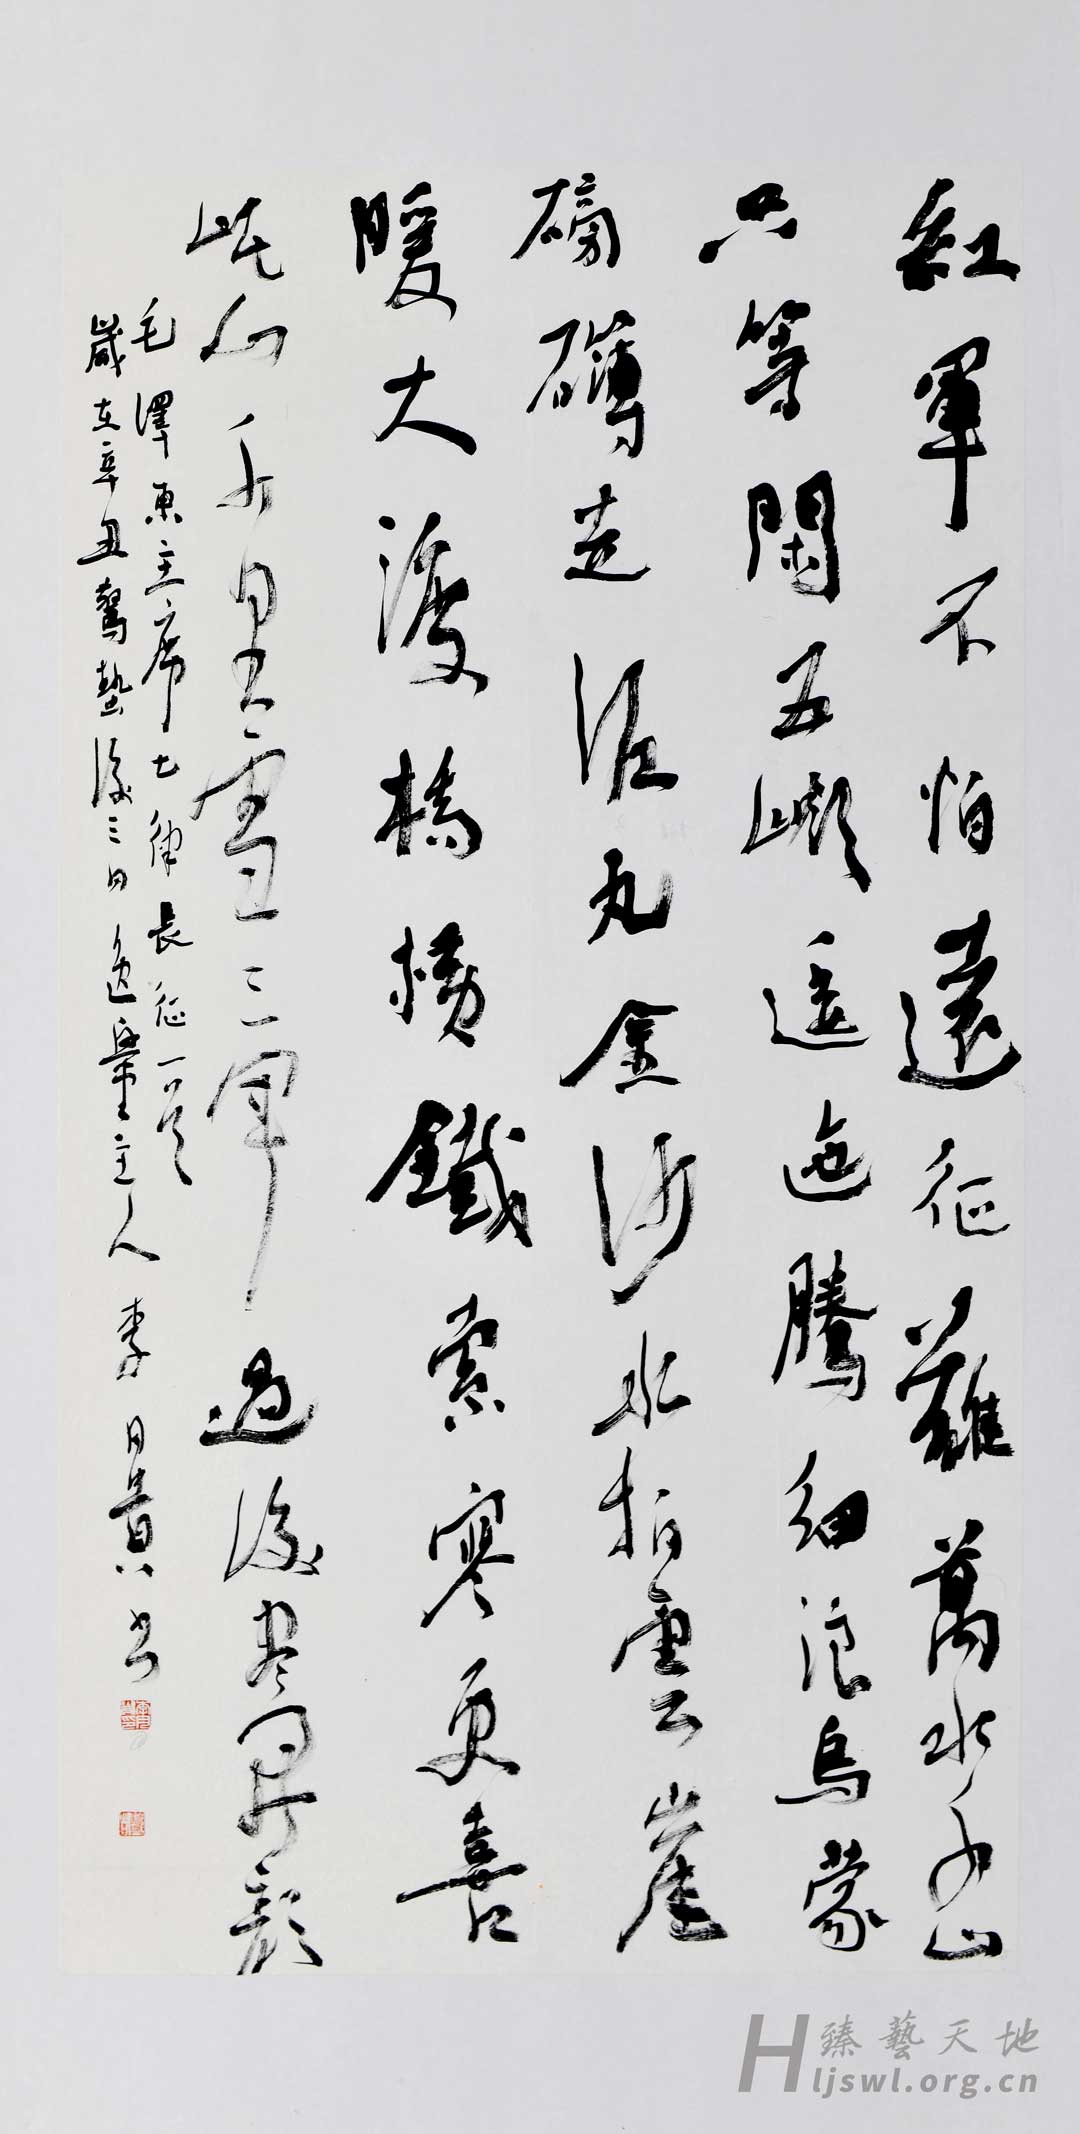 紅軍不怕遠征難萬水千山
只等閑五嶺逶迤騰細浪烏蒙
磅礴走泥丸金沙水拍雲崖
暖大渡橋橫鐵索寒更喜
岷山千里雪三軍過後盡開顏
毛澤東主席七律長征一首
歲在辛丑驚蟄後三日逸主人李日貴書
臻藝天地
Hljswl.org.cn